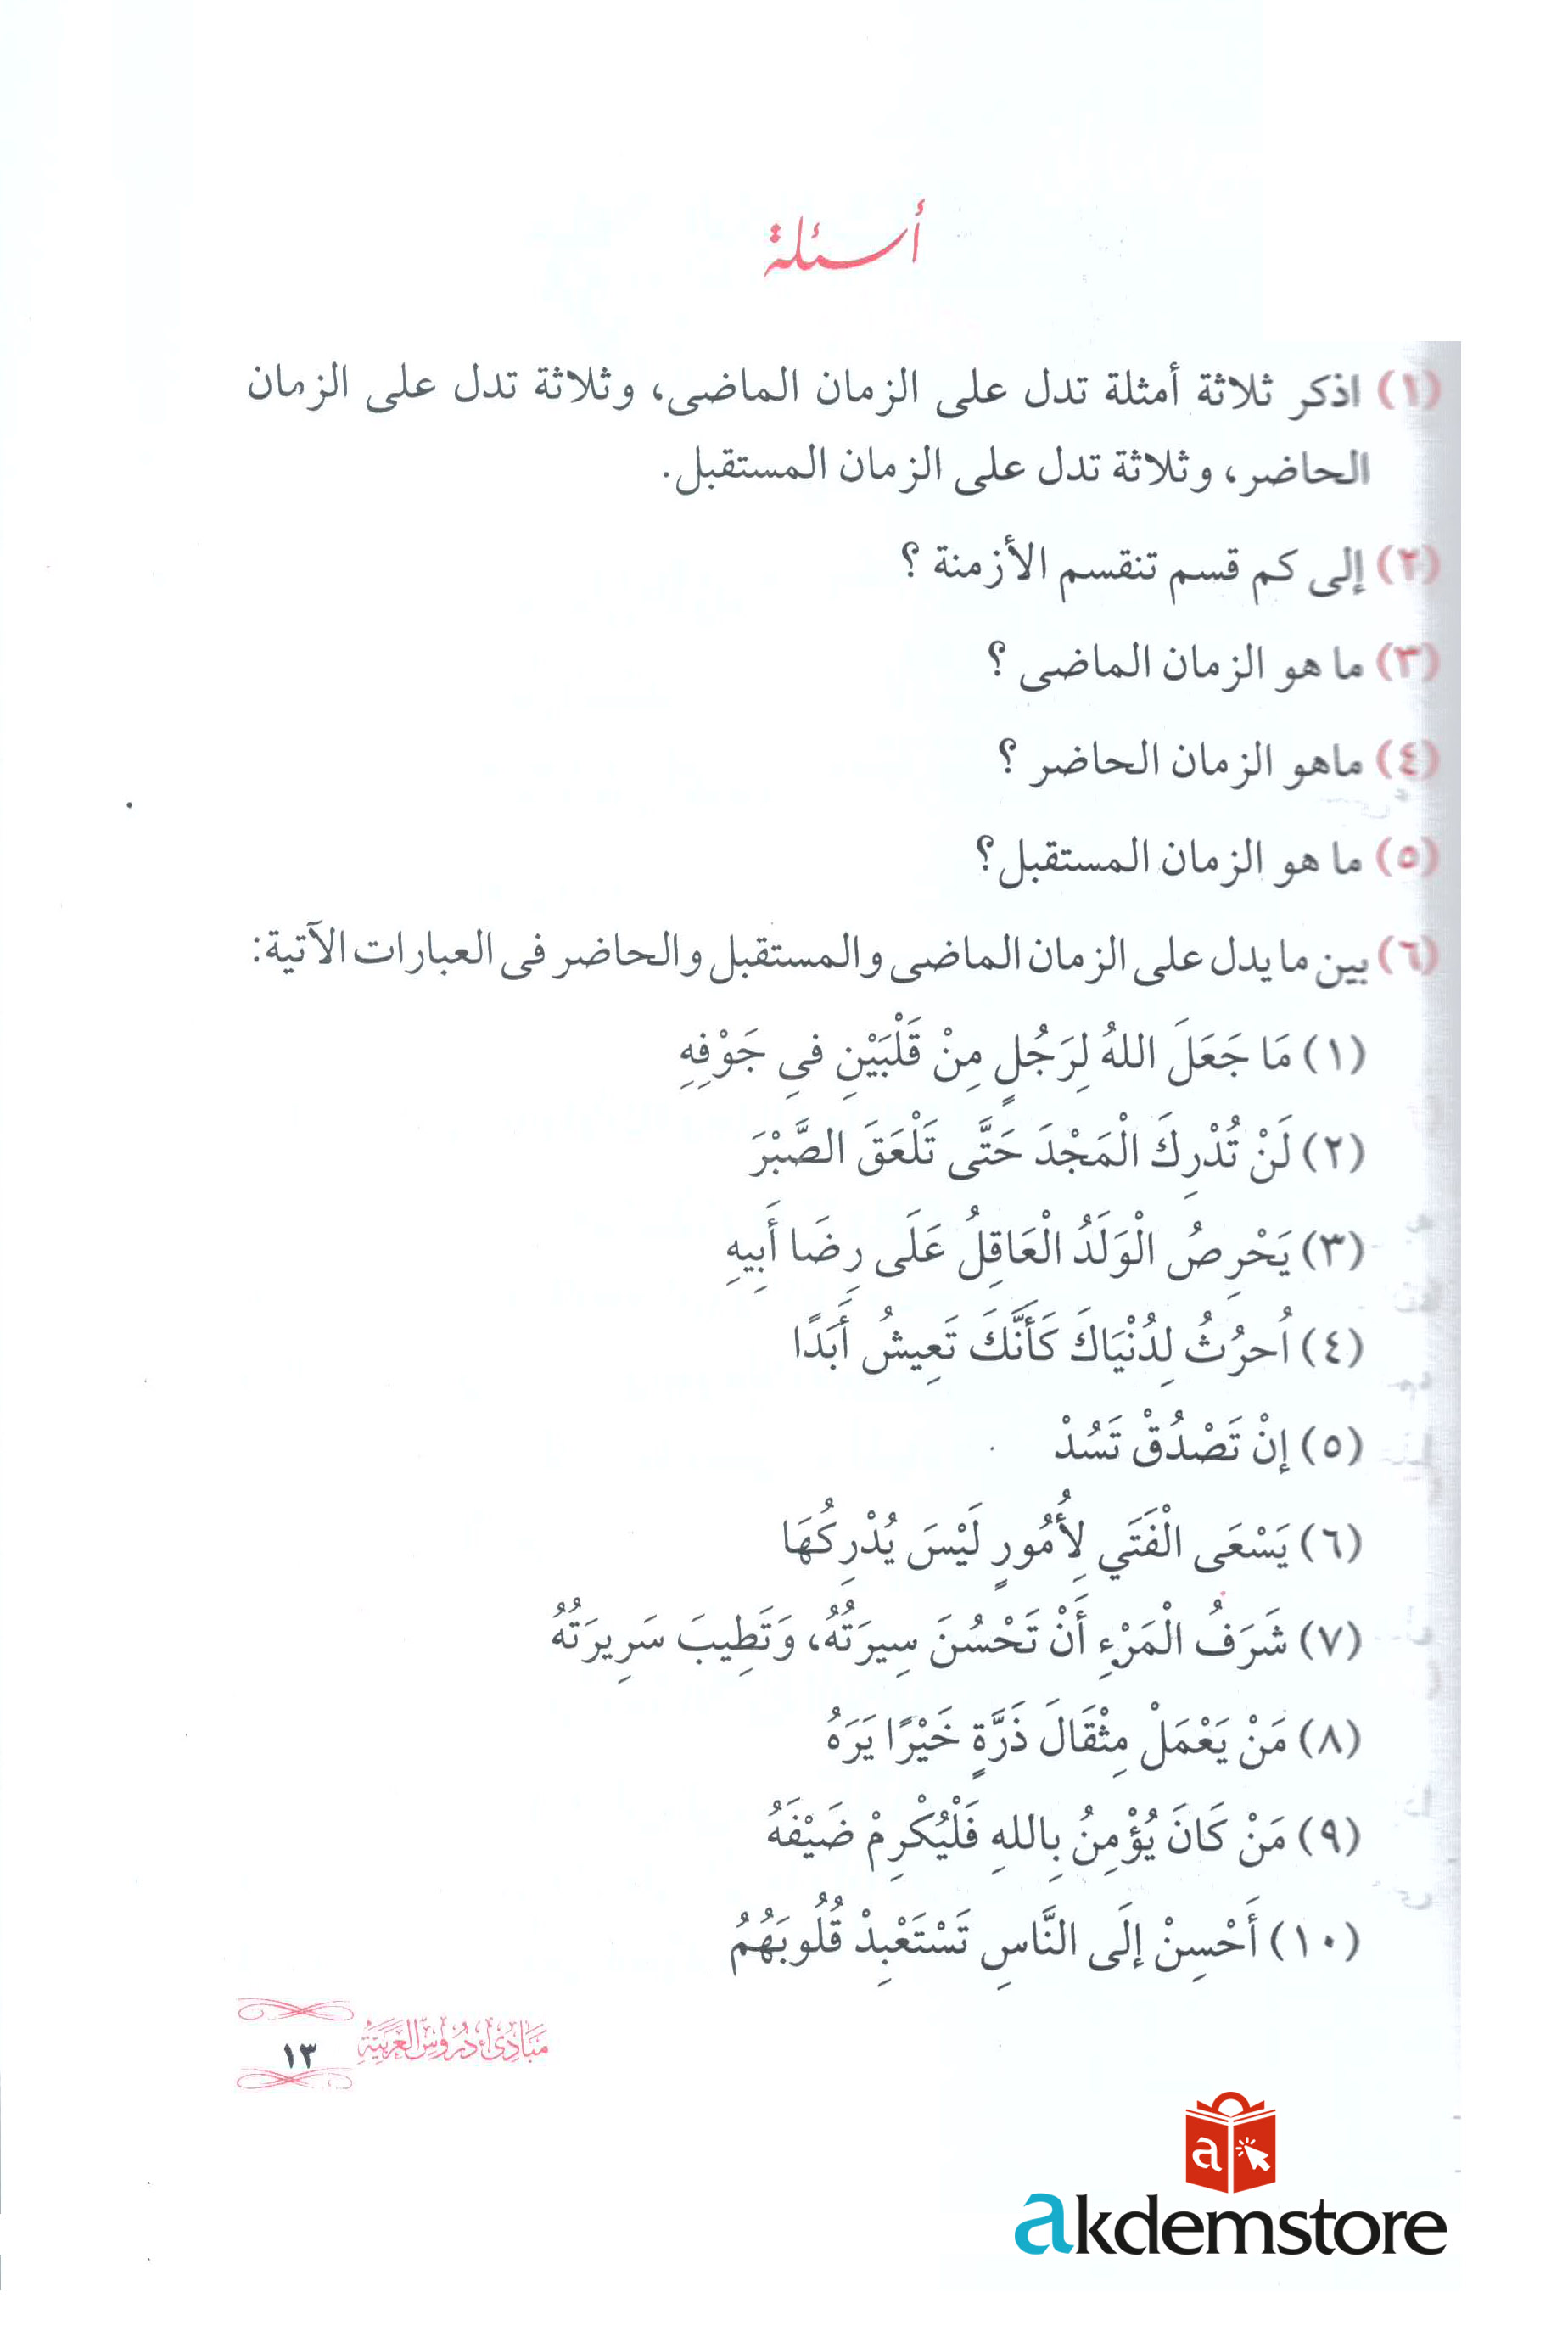 أسئلة
(١) اذكر ثلاثة أمثلة تدل على الزمان الماضى، وثلاثة تدل على الزمان
الحاضر، وثلاثة تدل على الزمان المستقبل.
(٢) إلى كم قسم تنقسم الأزمنة ؟
(٣) ما هو الزمان الماضى ؟
(٤) ماهو الزمان الحاضر ؟
(٥) ما هو الزمان المستقبل؟
(٦) بين ما يدل على الزمان الماضى والمستقبل والحاضر فى العبارات الآتية:
(١) مَا جَعَلَ اللهُ لِرَجُلٍ مِنْ قَلْبَيْنِ فىِ جَوْفِهِ
(٢) لَنْ تُدْرِكَ الْمَجْدَ حَتَّى تَلْعَقَ الصَّبْرَ
(٣) يَحْرِصُ الْوَلَدُ الْعَاقِلُ عَلَى رِضَا أَبِيهِ
(٤) اُحرُثُ لِدُنْيَاكَ كَأَنَّكَ تَعِيشُ أَبَدًا
(٥) إنْ تَصْدُقْ تَسُدْ
(٦) يَسْعَى الْفَتَي لِأُمُورٍ لَيْسَ يُدْرِكُهَا
(٧) شَرَفُ الْمَرْءِ أَنْ تَحْسُنَ سِيرَتُهُ، وَتَطِيبَ سَرِيرَتُهُ
(٨) مَنْ يَعْمَلْ مِثْقَالَ ذَرَّةٍ خَيْرًا يَرَهُ
(٩) مَنْ كَانَ يُؤْمِنُ بِاللهِ فَلْيُكْرِمْ ضَيْفَهُ
(١٠) أَحْسِنْ إلَى النَّاسِ تَسْتَعْبِدْ قُلُوبَهُمُ
مَبَادِئُ دُرُوسِ الْعَرَبِيَّةِ
١٣
a
akdemstore